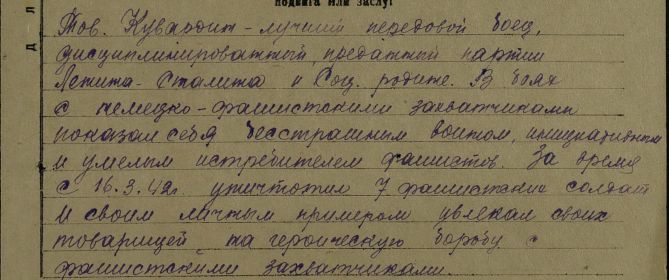 подвига или заслуг
Тов. Кувардин - лучший передовой боец,
дисциплинированный, преданный партии
Ленина - Сталина и Соц. родине. В боях
с немецко-фашистскими захватчиками
показал себя бесстрашным воином, инициативным
и умелым истребителем фашистов. За время
с 16.3.42г. уничтожил 7 фашистских солдат
и своим личным примером увлекал своих
товарищей на героическую борьбу с
фашистскими захватчиками.